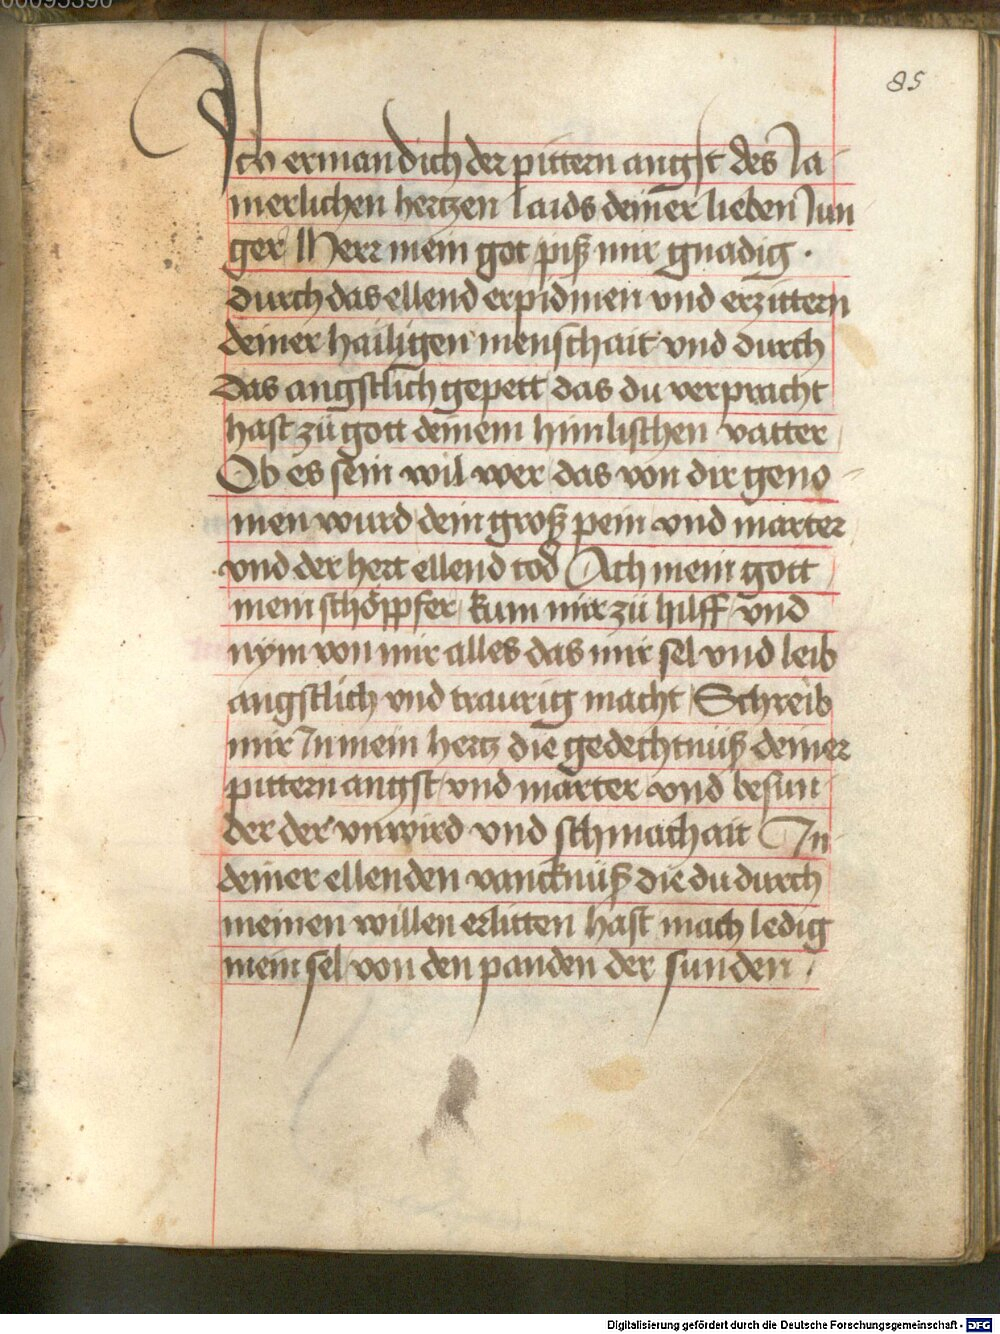 00095390
85
Ich erman dich der pittern angst des Ja
merlichen hertzen laids deiner lieben Jun
ger Herr mein got piß mir gnadig ·
durch das ellend erpidmen vnd erzittern
deiner hailigen menschait vnd durch
das angstlich gepett das du verpracht
hast zü gott deinem himlischen vatter
Ob es sein wil wer das von dir geno
men wurd dein groß pein vnd marter
vnd der hert ellend tod Ach mein gott
mein schöpfer kum mir zü hilff vnd
nÿm von mir alles das mir sel vnd leib
angstlich vnd traurig macht Schreib
mir In mein hertz die gedechtnüß deiner
pittern angst vnd marter vnd besun
der der vnwird vnd schmachait In
deiner ellenden vancknüß die du durch
meinen willen erlitten hast mach ledig
mein sel von den panden der sunden
Digitalisierung gefördert durch die Deutsche Forschungsgemeinschaft - DFG